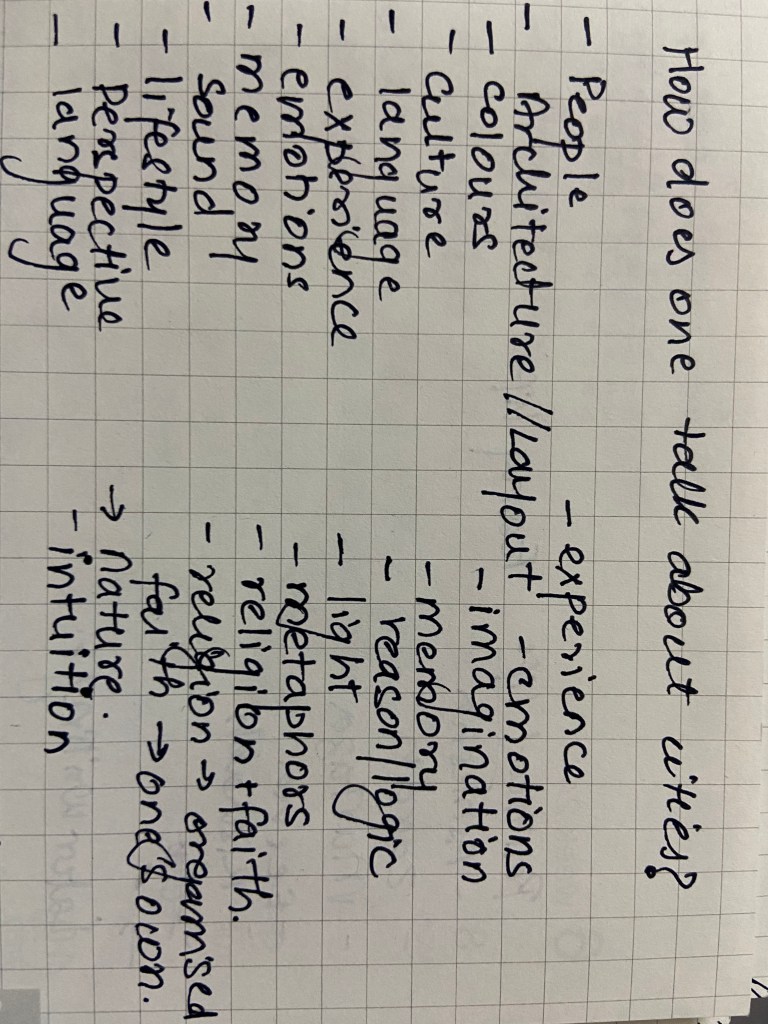 How does one talk about cities?
- People
- Architecture//Layout
- colours
- culture
- language
- experience
- emotions
- memory
- sound
- lifestyle
- perspective
- language
- experience
- emotions
- imagination
- memory
- reason/logic
- light
- metaphors
- religion + faith.
- religion → organised
faith → one's own.
→ nature.
- intuition